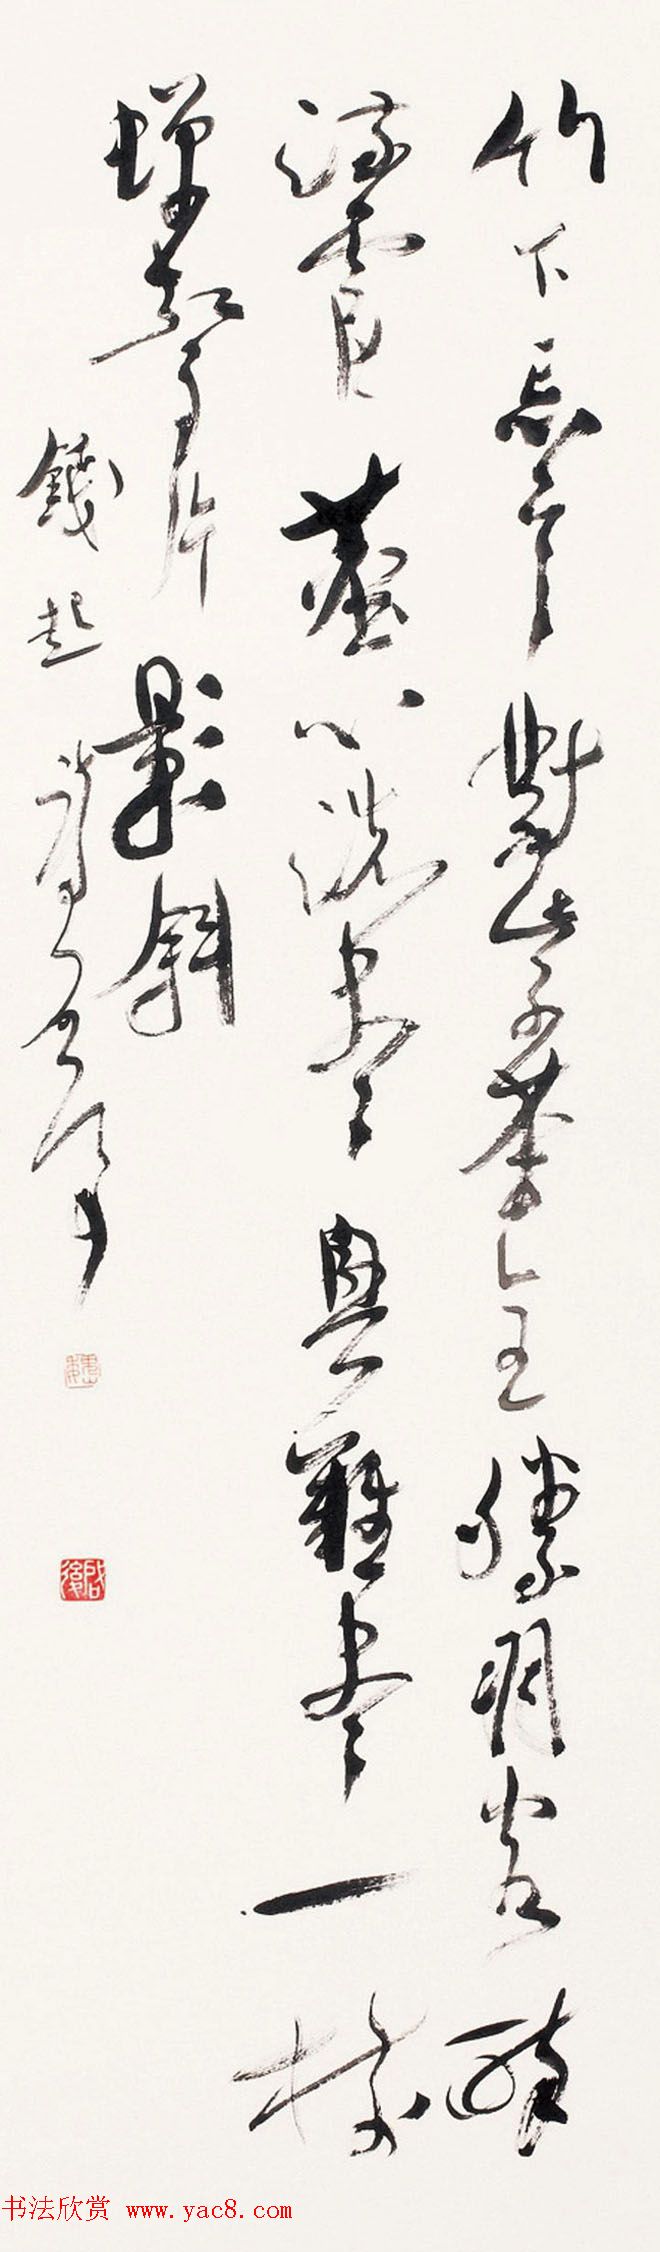 竹下忘言對紫茶全勝羽客醉
流霞塵心洗盡興難盡一樹
蟬聲片影斜
錢起詩
魏
啟後
书法欣赏 www.yac8.com